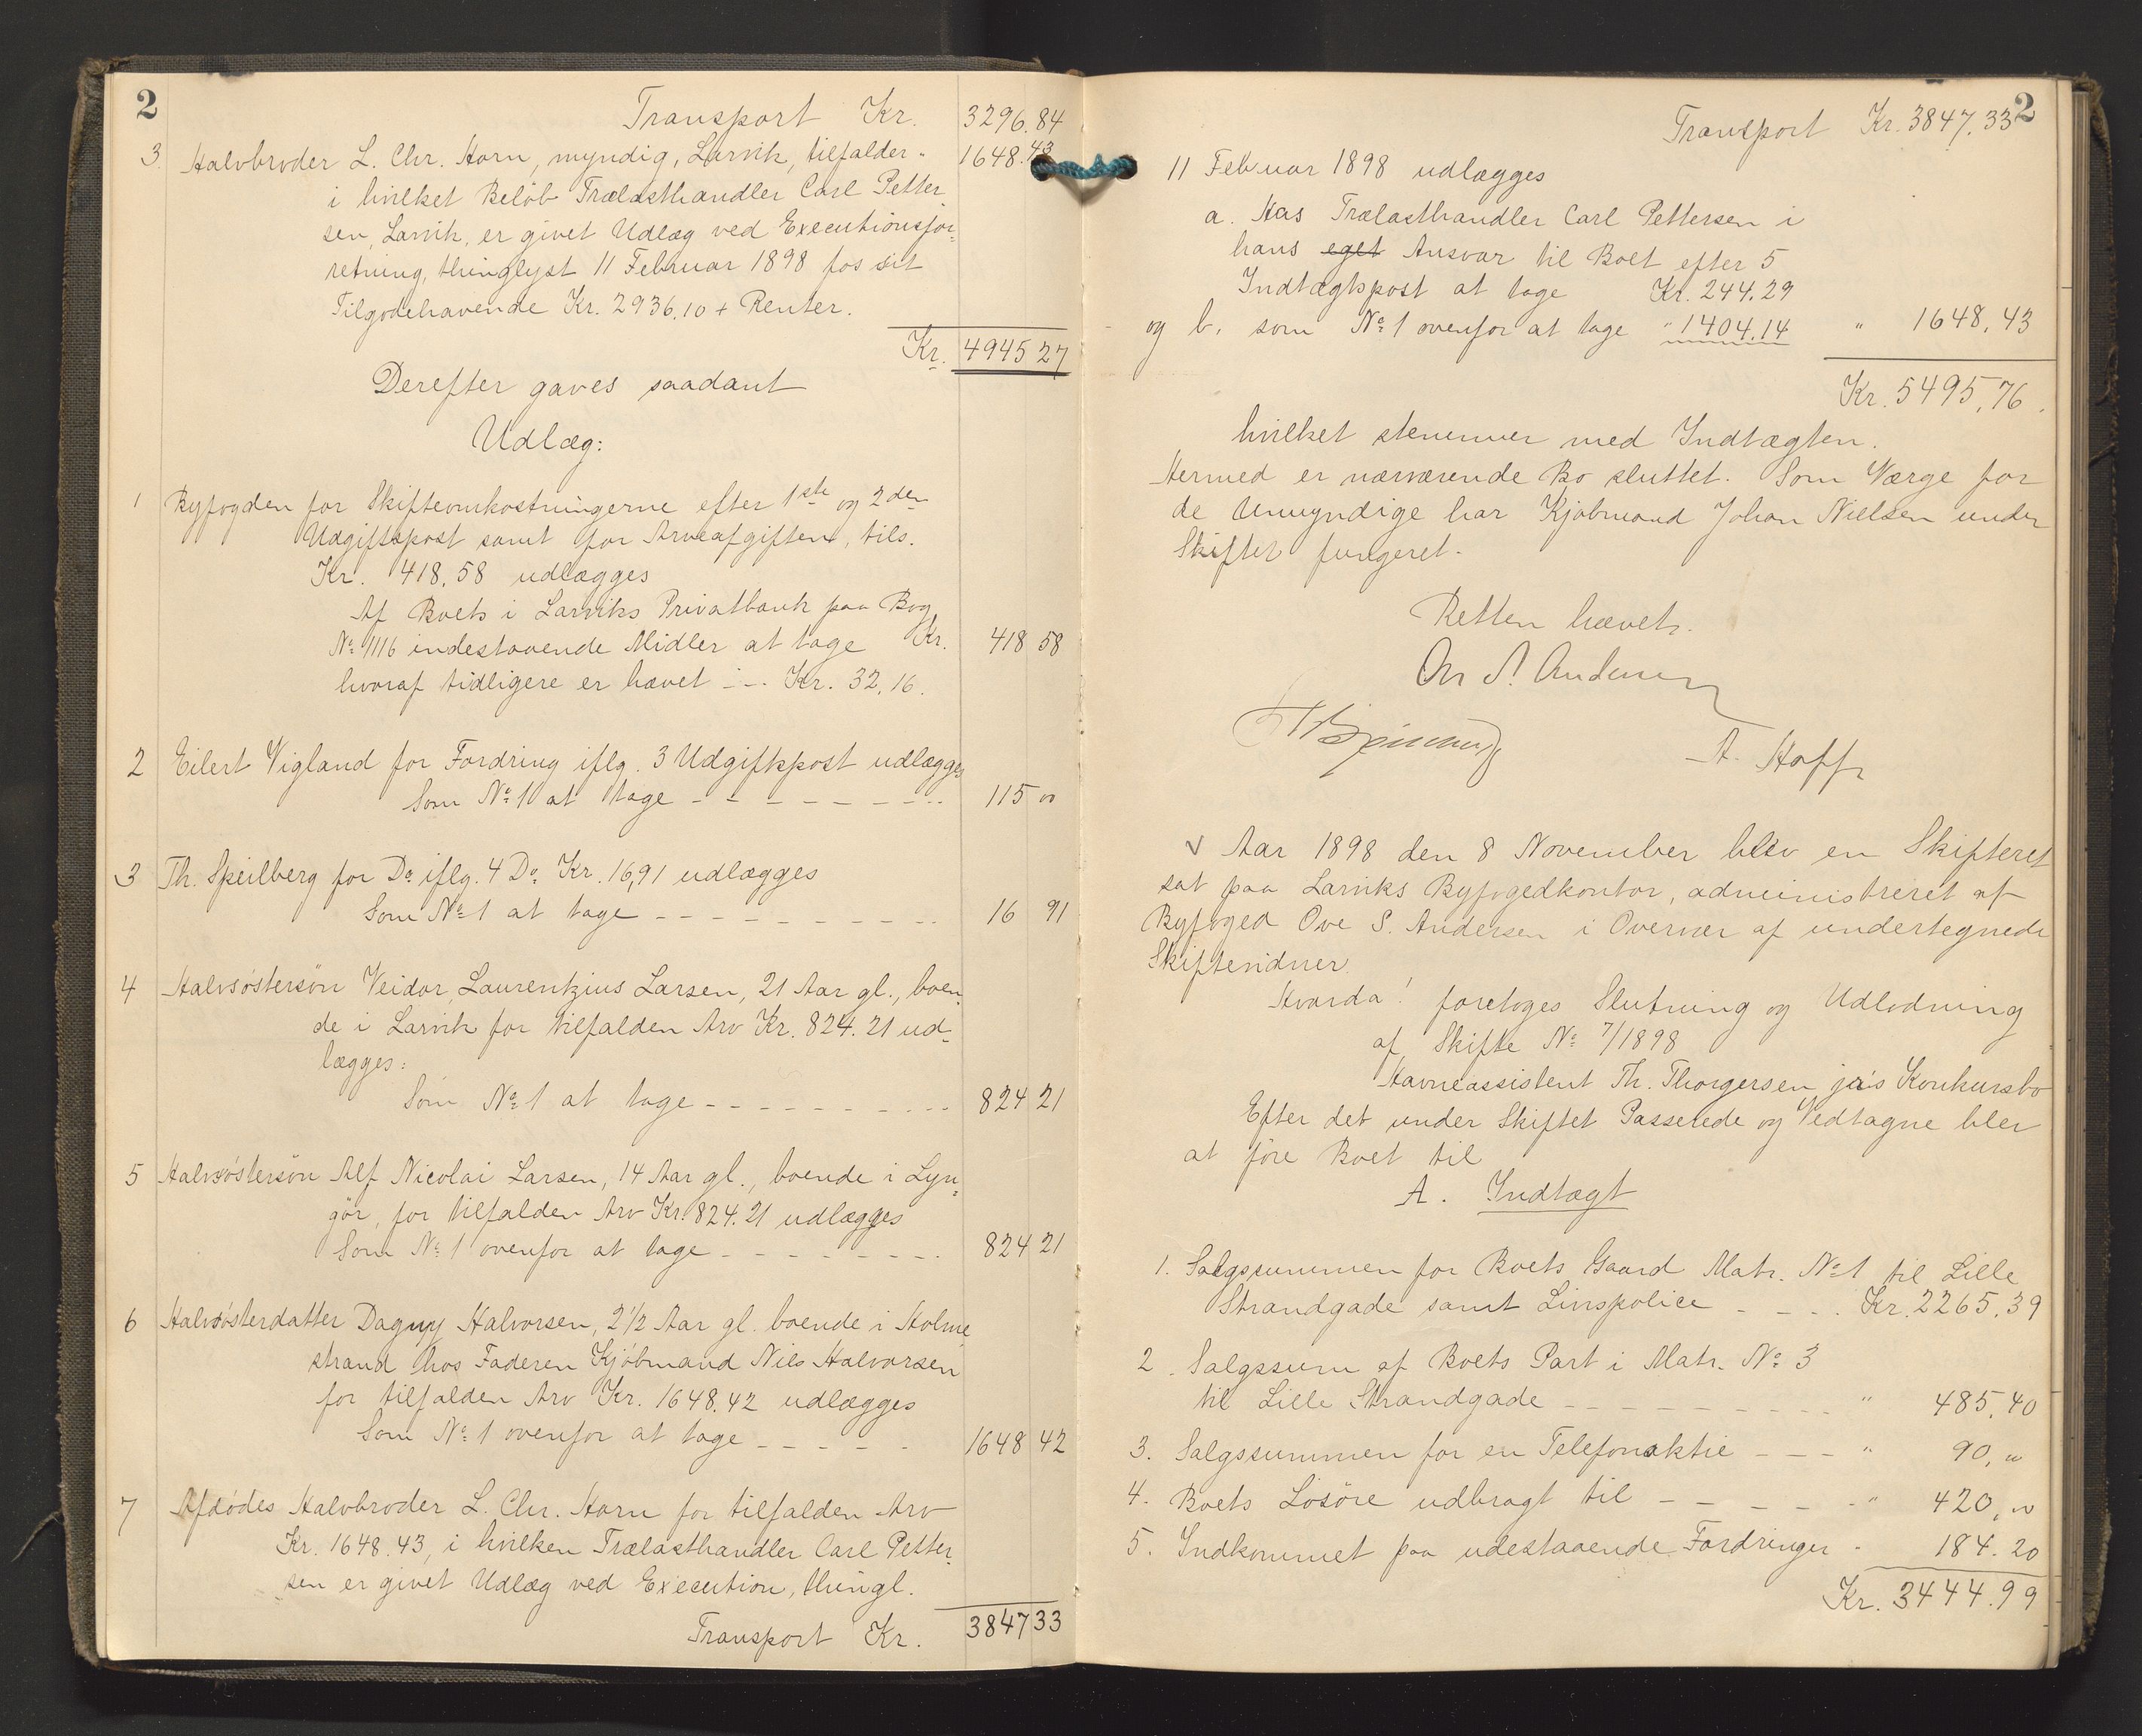 2
Transport Kr. 3296.84
3. Halvbroder L. Chr. Horn, myndig, Larvik, tilfalder - 1648.43
i hvilket Beløb Trælasthandler Carl Petter-
sen, Larvik, er givet Udlæg ved Executionsfor-
retning, thinglyst 11 Februar 1898 for sit
Tilgodehavende Kr. 2936.10 + Renter.
Kr. 4945 27
Derefter gaves saadant
Udlæg:
1 Byfogden for Skifteomkostningerne efter 1ste og 2den
Udgiftspost samt for Arveafgiften, tils.
Kr. 418.58 udlægges
Af Boets i Larviks Privatbank paa Bog
No 1116 indestaaende Midler at tage Kr. 418 58
hvoraf tidligere er hævet - - Kr. 32,16.
2 Eilert Vigland for Fordring iflg. 3 Udgiftspost udlægges
Som No 1 at tage - - - - - - - - 115 00
3 Th. Speilberg for Do iflg. 4 Do. Kr. 16,91 udlægges
Som No 1 at tage - - - - - - - - - - 16 91
4 Halvsøstersøn Veidar Laurentzius Larsen, 21 Aar gl., boen-
de i Larvik for tilfalden Arv Kr. 824.21 ud-
lægges:
Som No 1 at tage - - - - - - - - - 824 21
5 Halvsøstersøn Alf Nicolai Larsen, 14 Aar gl., boende i Lyn-
gør, for tilfalden Arv Kr. 824.21 udlægges
Som No 1 ovenfor at tage - - - - - - - - 824 21
6 Halvsøsterdatter Dagny Halvorsen, 2 1/2 Aar gl. boende i Holme
strand hos Faderen Kjøbmand Nils Halvorsen
for tilfalden Arv Kr. 1648.42 udlægges
Som No 1 ovenfor at tage - - - - - 1648 42
7 Afdødes Halvbroder L. Chr. Horn for tilfalden Arv
Kr. 1648.43, i hvilken Trælasthandler Carl Petter-
sen er givet Udlæg ved Execution, thingl.
Transport Kr. 3847 33
2
Transport Kr. 3847.33
11 Februar 1898 udlægges
a. Hos Trælasthandler Carl Pettersen i
hans eget Ansvar til Boet efter 5
Indtægtspost at tage Kr. 244.29
og b. som No 1 ovenfor at tage " 1404.14 " 1648,43
Kr. 5495,76.
hvilket stemmer med Indtægten.
Hermed er nærværende Bo sluttet. Som Værge for
de Umyndige har Kjøbmand Johan Nielsen under
Skiftet fungeret.
Retten hævet.
Ove S. Andersen
A. Hoff
Aar 1898 den 8 November blev en Skifteret
sat paa Larviks Byfogedkontor, administreret af
Byfoged Ove S. Andersen i Overvær af undertegnede
Skiftevidner.
Hvorda! foretoges Slutning og Udlodning
af Skifte No 7/1898
Havneassistent Th. Thorgersen jr's Konkursbo
Efter det under Skiftet Passerede og Vedtagne blev
at føre Boet til
A. Indtægt
1. Salgssummen for Boets Gaard Matr. No 1 til Lille
Strandgade samt Livspolice - - - - Kr. 2265.39
2. Salgssum af Boets Part i Matr. No 3
til Lille Strandgade - - - - - - - - - " 485,40
3. Salgssummen for en Telefonaktie - - - " 90, "
4. Boets Løsøre udbragt til - - - - - " 420, "
5. Indkommet paa udestaaende Fordringer - 184.20
Kr. 3444.99